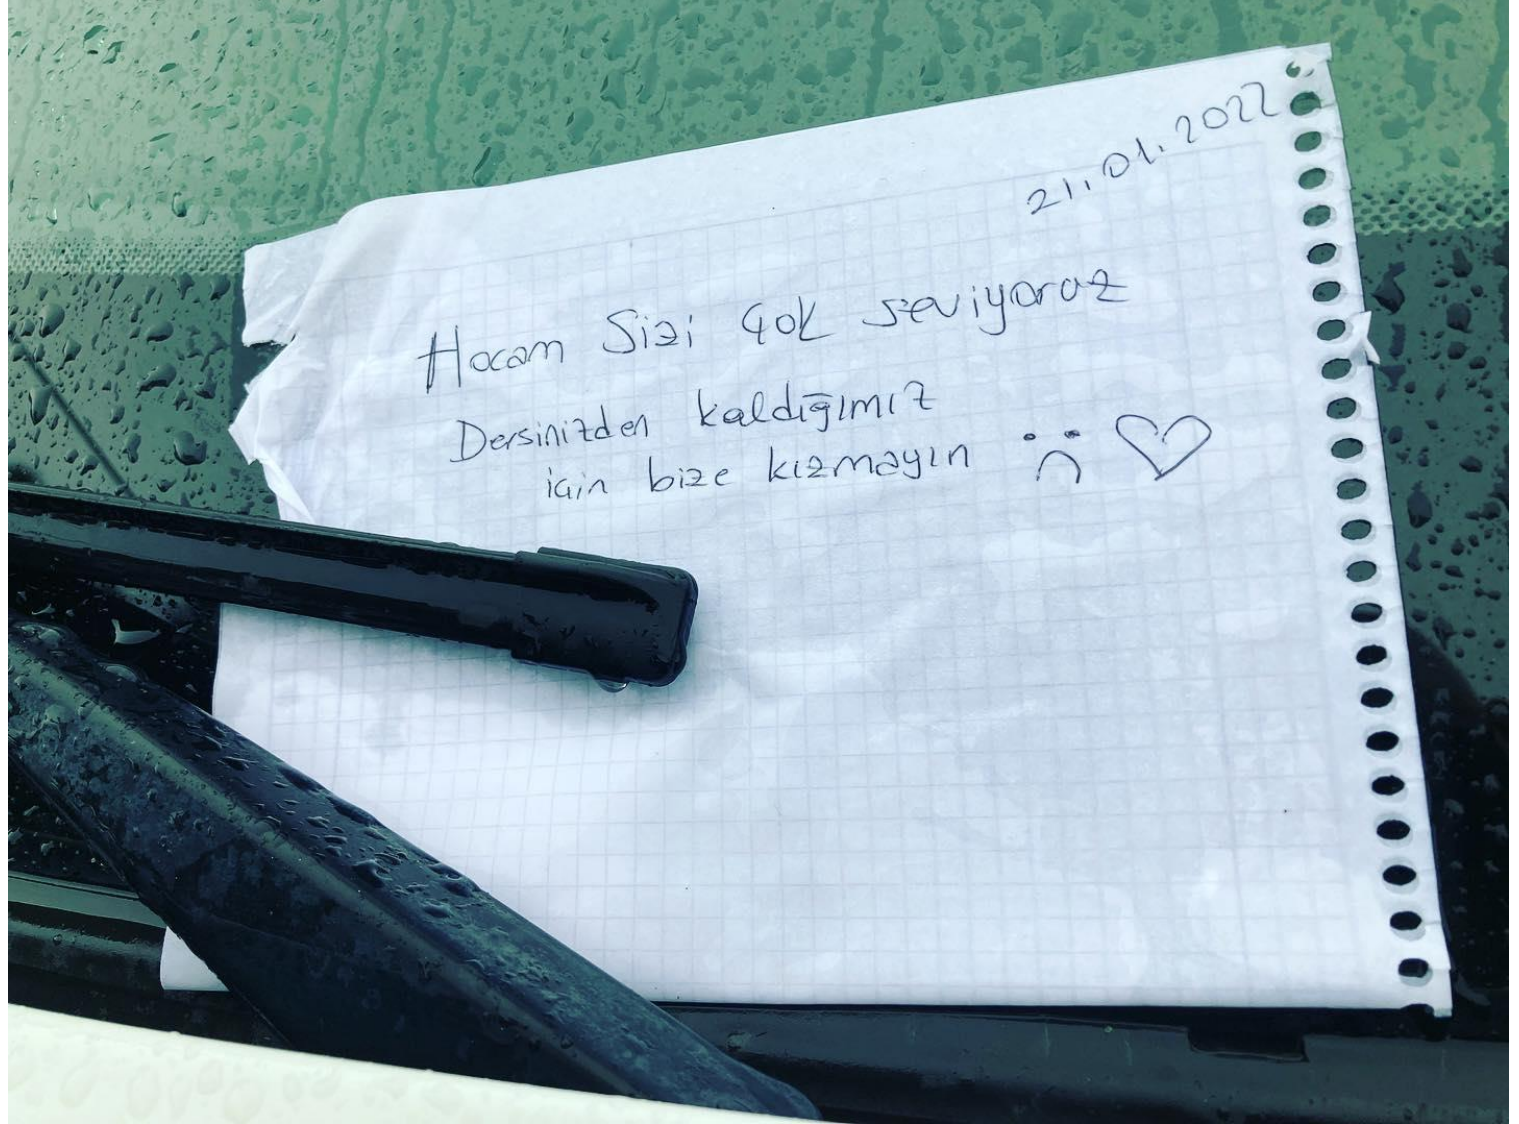 21.01.2022
Hocam Sizi Çok seviyoruz
Dersinizden kaldığımız
için bize kızmayın